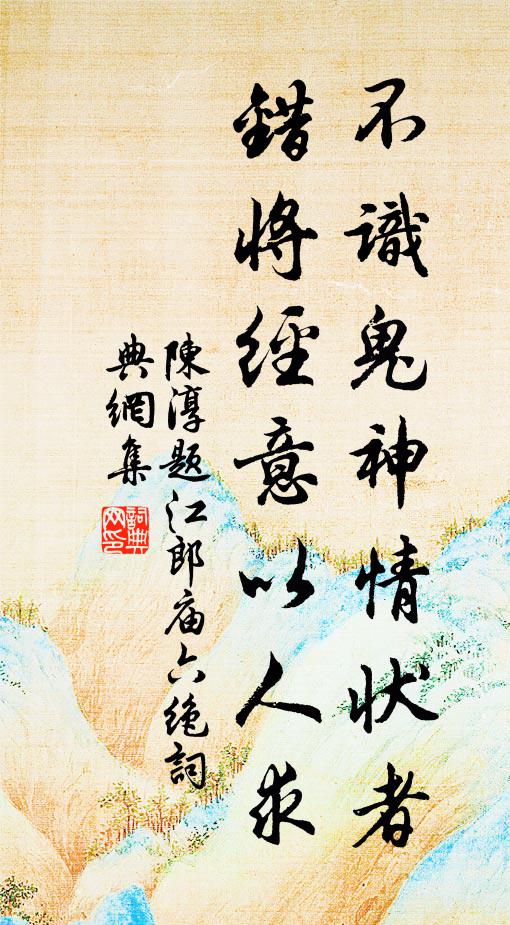 不識鬼神情狀者
錯將經意以人求
陳淳題江郎庙六絶詞
典網集
詞典网印